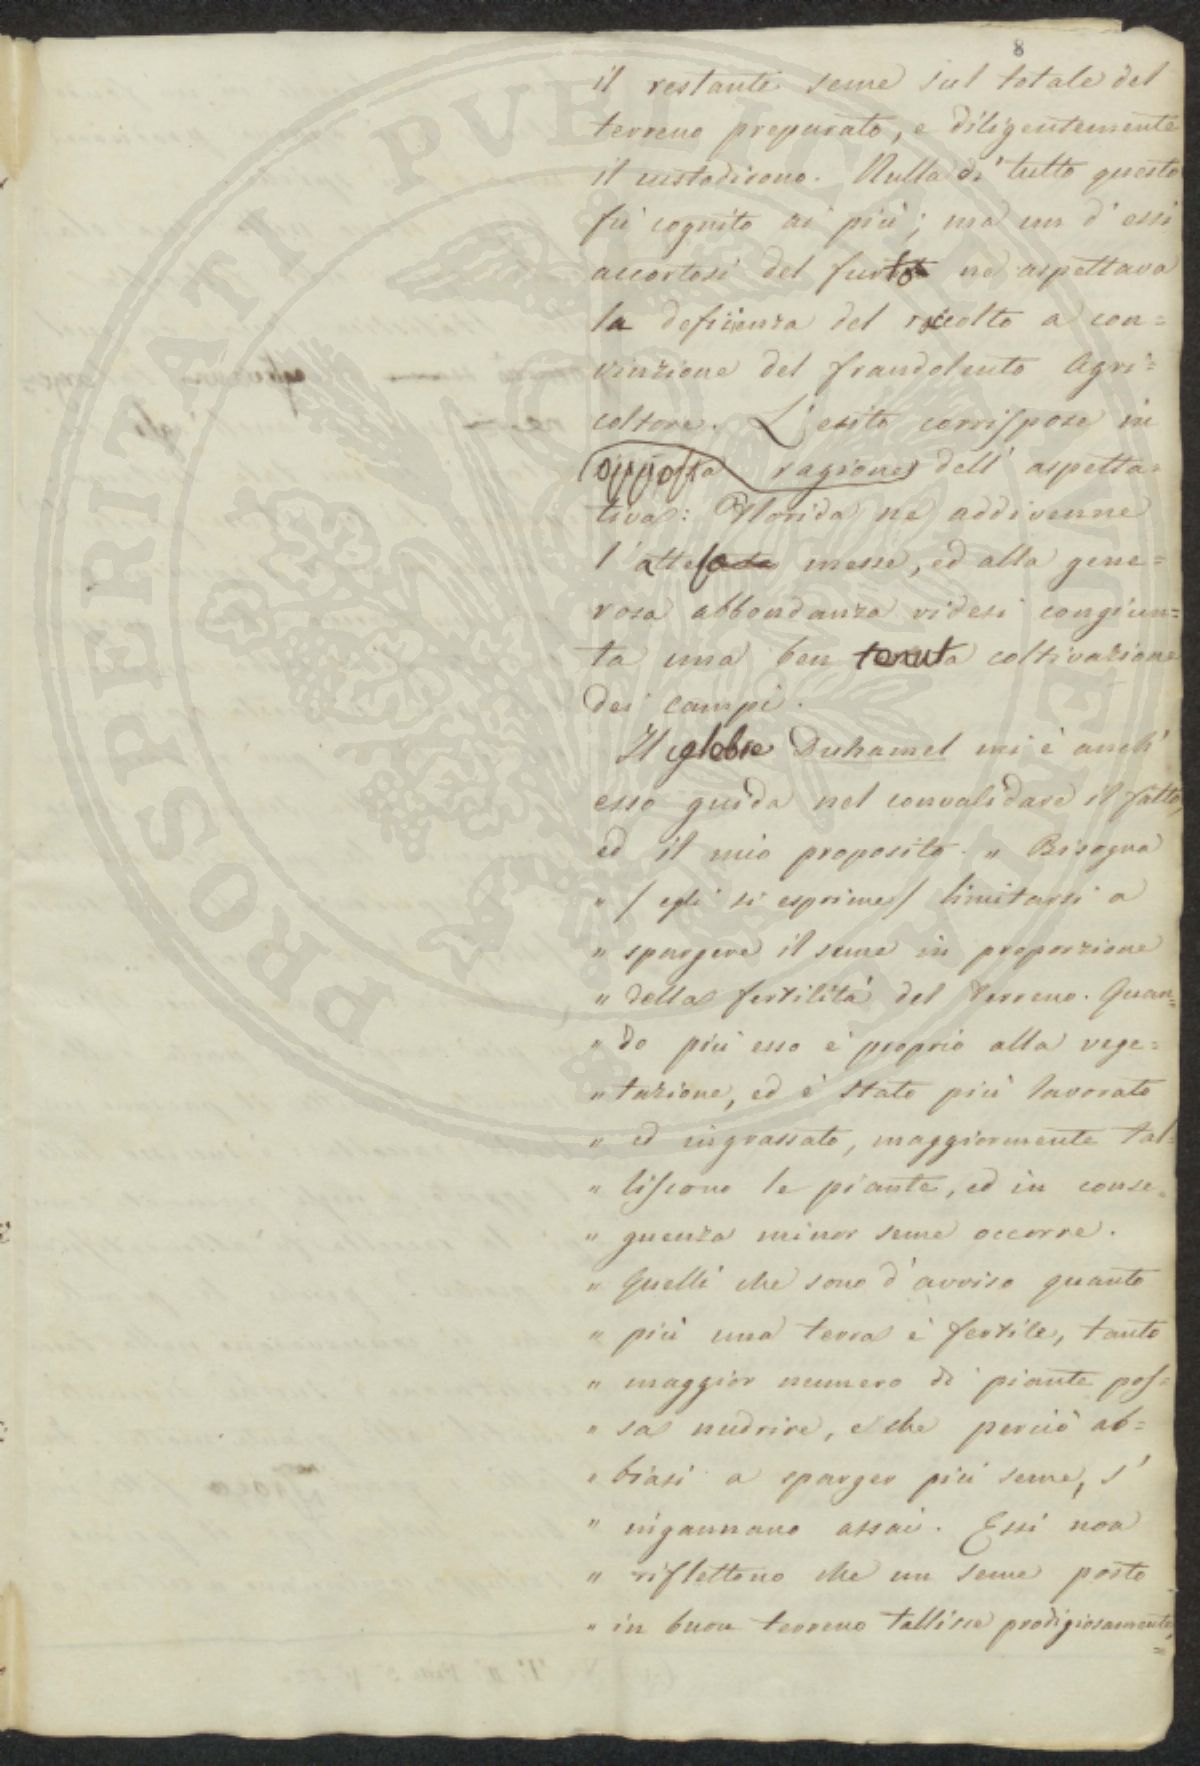 8
il restante seme sul totale del
terreno preparato, e diligentemente
il custodirono. Nulla di tutto questo
fù cognito ai più; ma un d'essi
accortosi del furto ne aspettava
la deficienza del ricolto a con=
vinzione del fraudolento Agri=
coltore. L'esito corrispose in
opposta ragione dell'aspetta=
tiva: Florida ne addivenne
l'attesa messe, ed alla gene=
rosa abbondanza videsi congiun=
ta una ben tenuta coltivazione
dei campi.
Il celebre Duhamel mi è anch'
esso guida nel convalidare il fatto,
ed il mio proposito. „ Bisogna
„ / egli si esprime / limitarsi a
„ spargere il seme in proporzione
„ della fertilità del terreno. Quan=
„ do più esso è proprio alla vege=
„ tazione, ed è stato più lavorato
„ ed ingrassato, maggiormente tal=
„ liscono le piante, ed in conse=
„ guenza minor seme occorre.
„ Quelli che sono d'avviso quanto
„ più una terra è fertile, tanto
„ maggior numero di piante pos=
„ sa nudrire, e che perciò ab=
„ biasi a sparger più seme, s'
„ ingannano assai. Essi non
„ riflettono che un seme posto
„ in buon terreno tallisce prodigiosamente,=
PROSPERITATI PVBLICAE